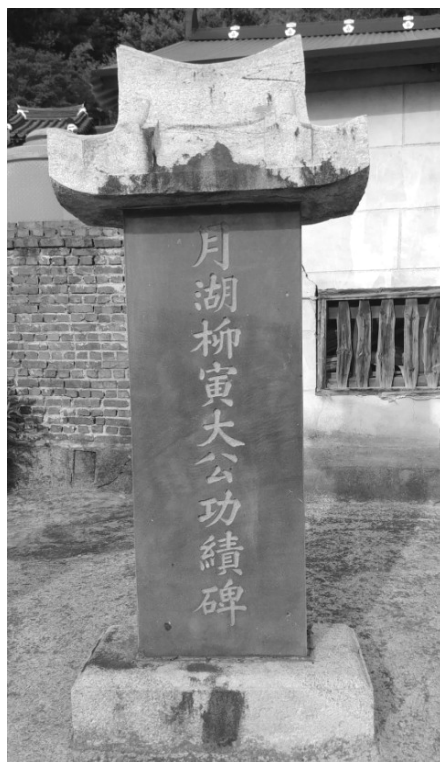 月湖柳寅大公功績碑